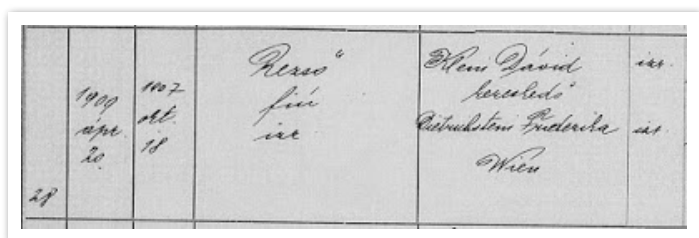 28
1909
ápr.
20.
1907
okt.
18
Rezső
fiú
izr
Klein Dávid
kereskedő
Dietrichstein Friderika
Wien
izr.
izr.